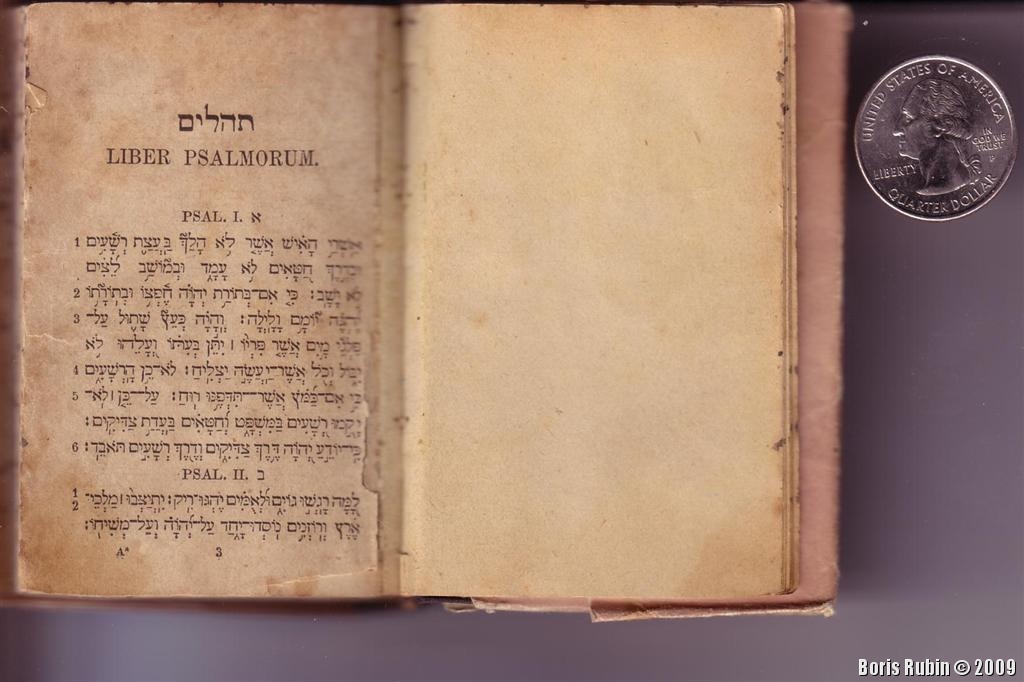 תהלים
LIBER PSALMORUM.
PSAL. I. א
1 אַשְׁרֵי הָאִישׁ אֲשֶׁר לֹא הָלַךְ בַּעֲצַת רְשָׁעִים
וּבְדֶרֶךְ חַטָּאִים לֹא עָמָד וּבְמוֹשַׁב לֵצִים
2 לֹא יָשָׁב׃ כִּי אִם־בְּתוֹרַת יְהוָֹה חֶפְצוֹ וּבְתוֹרָתוֹ
3 יֶהְגֶּה יוֹמָם וָלָיְלָה׃ וְהָיָה כְּעֵץ שָׁתוּל עַל־
פַּלְגֵי מָיִם אֲשֶׁר פִּרְיוֹ ׀ יִתֵּן בְּעִתּוֹ וְעָלֵהוּ לֹא
4 יִבּוֹל וְכֹל אֲשֶׁר־יַעֲשֶׂה יַצְלִיחַ׃ לֹא־כֵן הָרְשָׁעִים
5 כִּי אִם־כַּמֹּץ אֲשֶׁר־תִּדְּפֶנּוּ רוּחַ׃ עַל־כֵּן ׀ לֹא־
יָקֻמוּ רְשָׁעִים בַּמִּשְׁפָּט וְחַטָּאִים בַּעֲדַת צַדִּיקִים׃
6 כִּי־יוֹדֵעַ יְהוָֹה דֶּרֶךְ צַדִּיקִים וְדֶרֶךְ רְשָׁעִים תֹּאבֵד׃
PSAL. II. ב
1 2 לָמָּה רָגְשׁוּ גוֹיִם וּלְאֻמִּים יֶהְגּוּ־רִיק׃ יִתְיַצְּבוּ ׀ מַלְכֵי־
אֶרֶץ וְרוֹזְנִים נוֹסְדוּ־יָחַד עַל־יְהוָֹה וְעַל־מְשִׁיחוֹ׃
A* 3
UNITED STATES OF AMERICA
IN
GOD WE
TRUST
P
LIBERTY
QUARTER DOLLAR
Boris Rubin © 2009